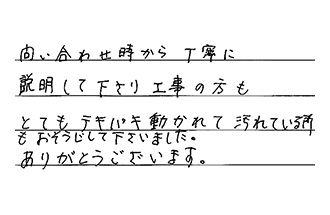 問い合わせ時から丁寧に
説明して下さり工事の方も
とてもテキパキ動かれて汚れている所
もおそうじして下さいました。
ありがとうございます。